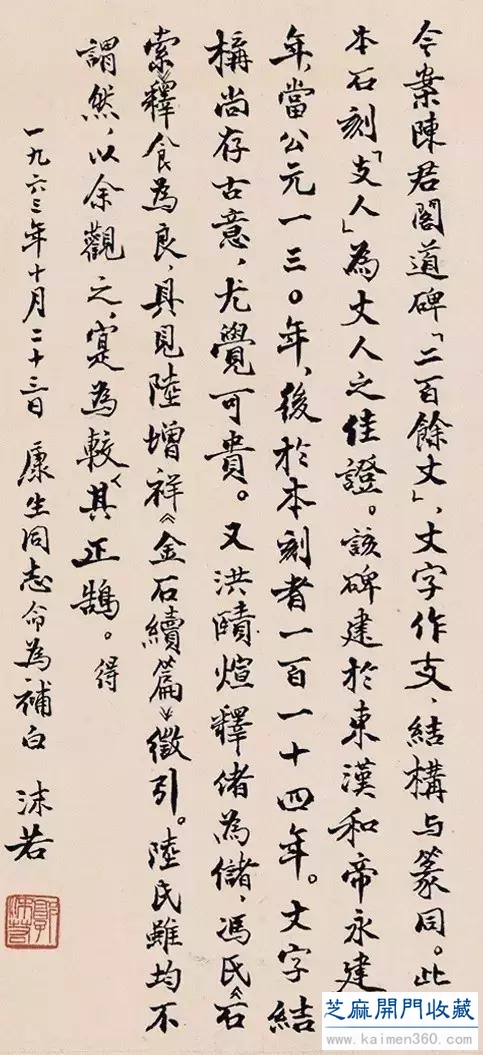 今案陳君閣道碑「二百餘丈」、丈字作支、結構与篆同。此
本石刻「支人」為丈人之佳證。該碑建於東漢和帝永建
年、當公元一三〇年、後於本刻者一百一十四年。文字結
構尚存古意,尤覺可貴。又洪頤煊釋偖為儲,馮氏《石
索》釋食為良,具見陸增祥《金石續篇》徵引。陸氏雖均不
謂然,以余觀之,寔為較其正鵠。得
一九六三年十月二十三日 康生同志命為補白 沫若
郭沫若
芝麻開門收藏
www.kaimen360.com